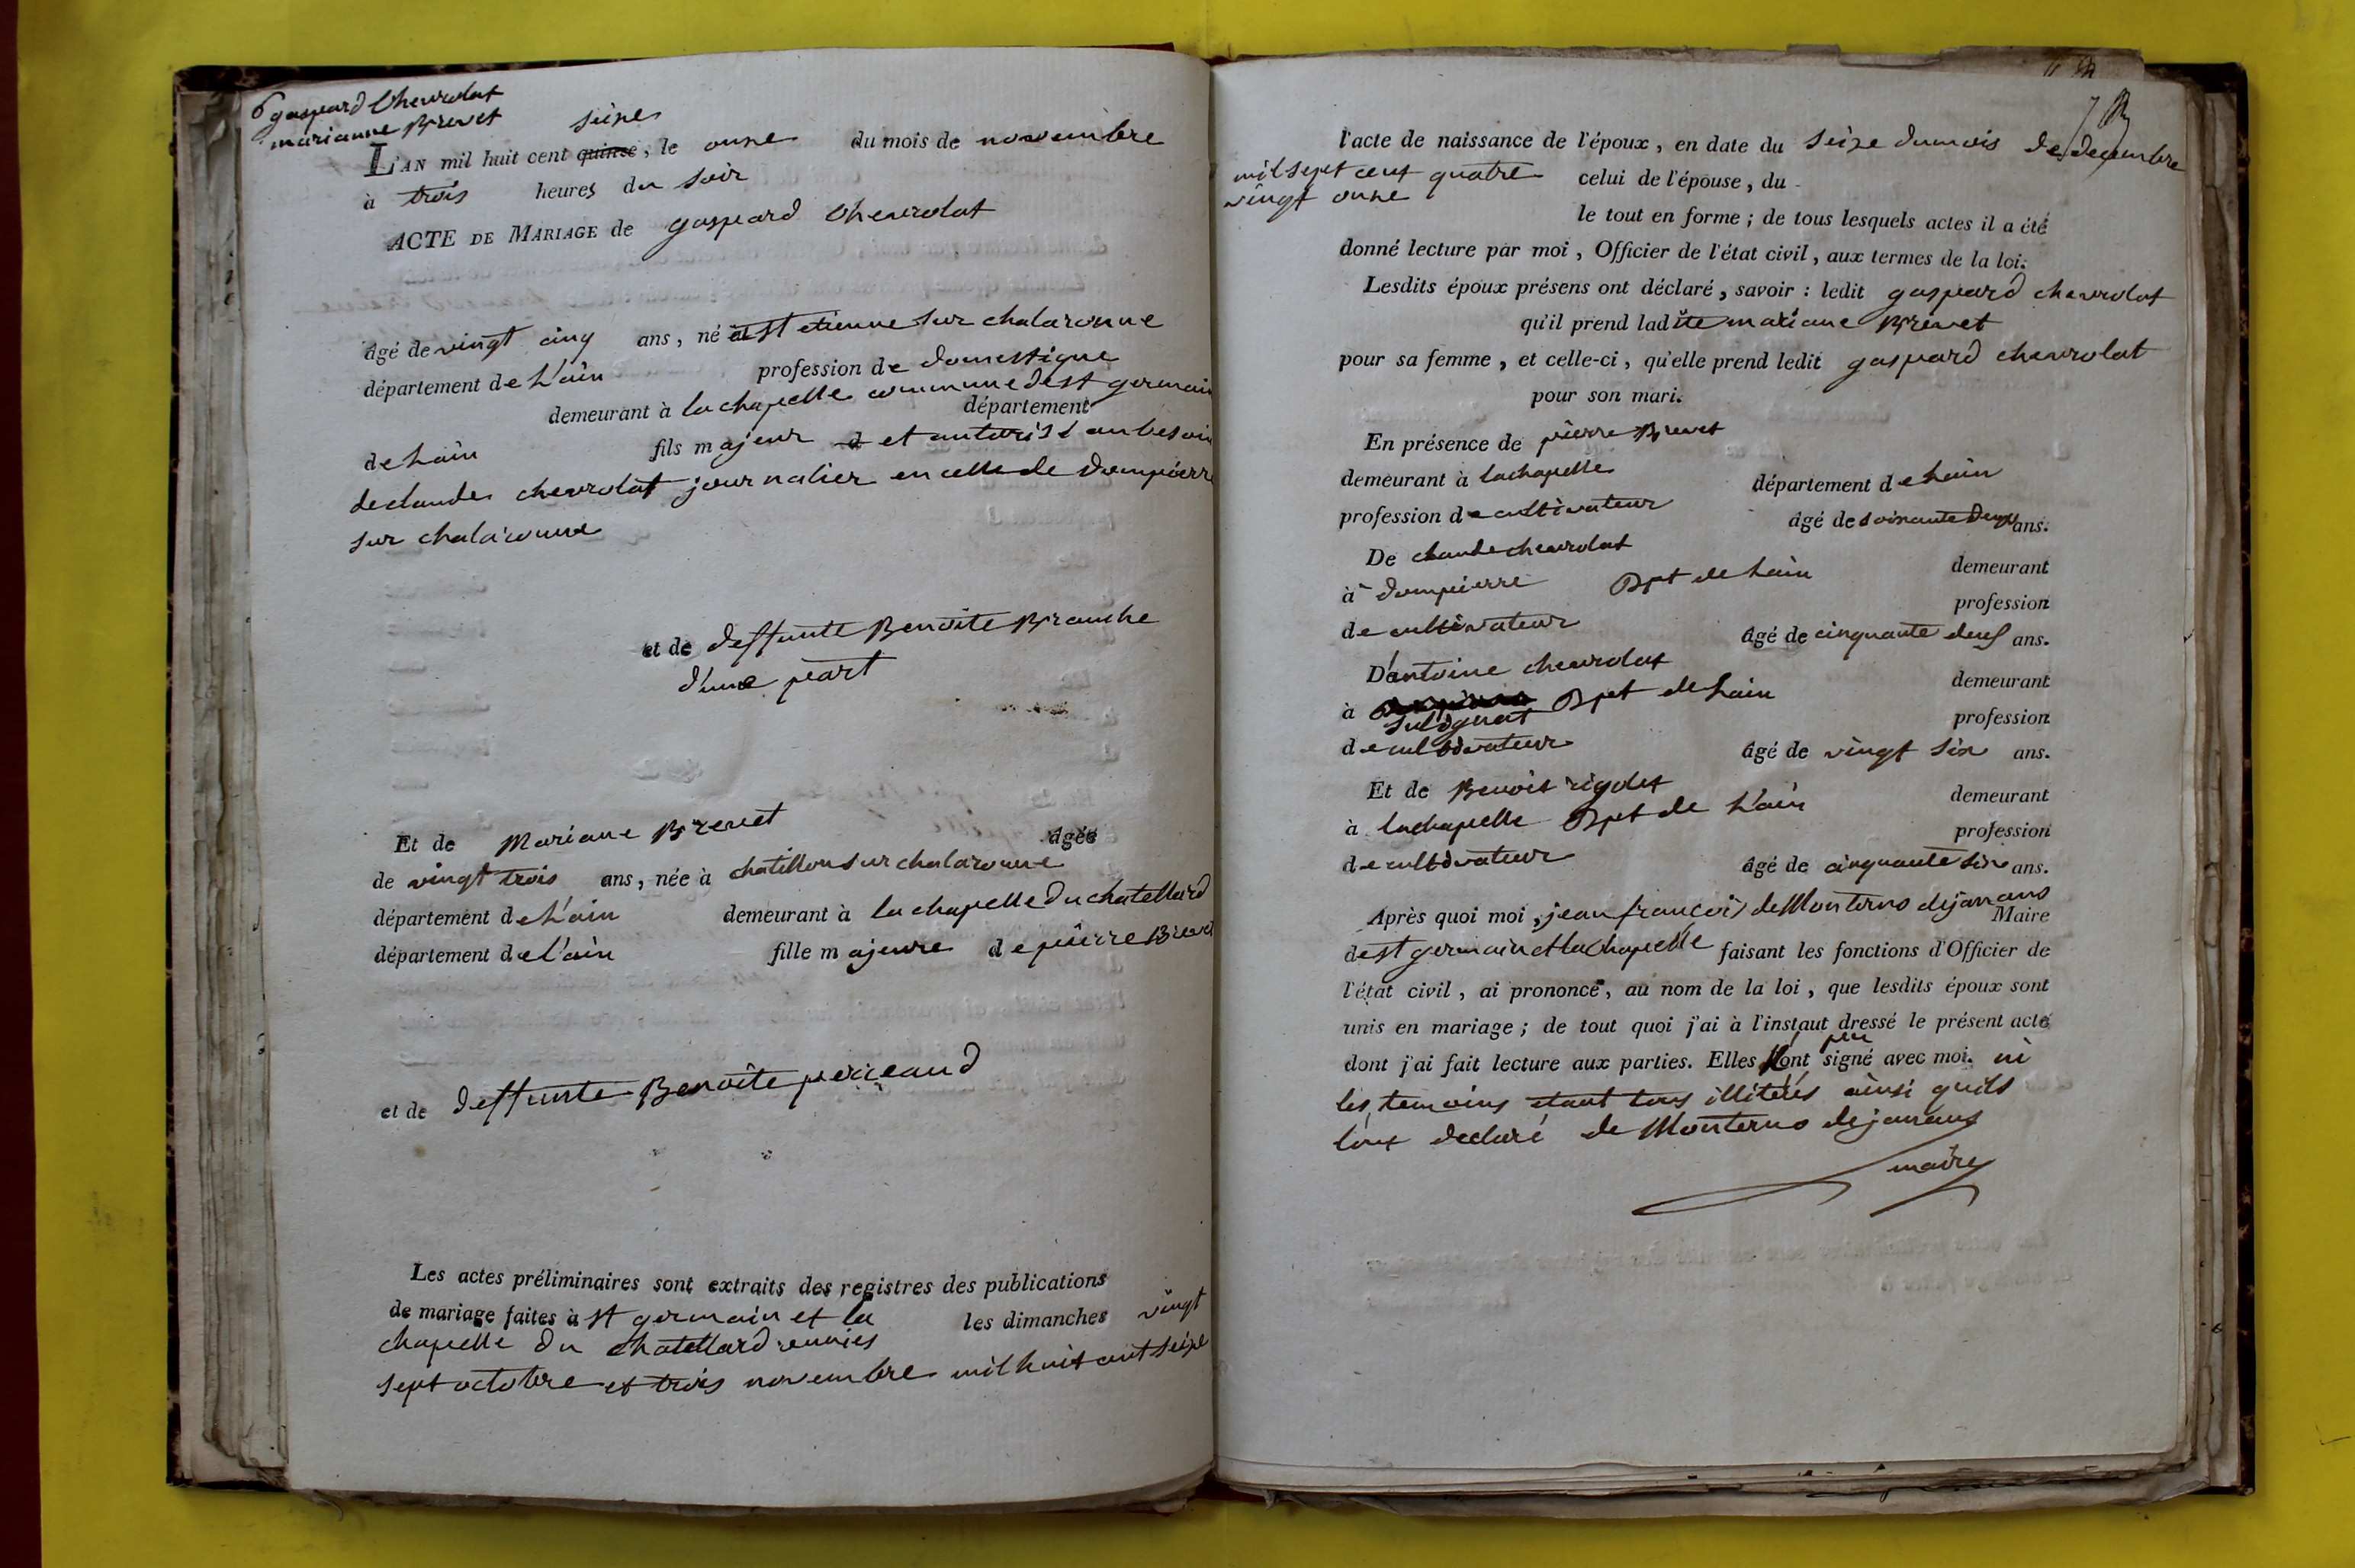 6 gaspard Chevrolat
marianne Brevet
seize
L'AN mil huit cent quinze, le onze du mois de novembre
à trois heures du soir
ACTE DE MARIAGE de gaspard Chevrolat
âgé de vingt cinq ans, né a st etienne sur chalaronne
département de L'ain profession de domestique
demeurant à la chapelle commune de st germain
département
de Lain fils majeur d et autorisé au besoin
de claude chevrolat journalier en celle de dompierre
sur chalaronne
et de deffunte Benoite Branche
d'une part
Et de Mariane Brevet âgée
de vingt trois ans, née à chatillon sur chalaronne
département de L'ain demeurant à la chapelle du chatellard
département de l'ain fille majeure de pierre Brevet
et de deffunte Benoite
Les actes préliminaires sont extraits des registres des publications
de mariage faites à st germain et la les dimanches vingt
chapelle du chatellard reunies
sept octobre et trois novembre mil huit cent seize
7
l'acte de naissance de l'époux, en date du seize du mois de decembre
mil sept cent quatre celui de l'épouse, du
vingt onze
le tout en forme; de tous lesquels actes il a été
donné lecture par moi, Officier de l'état civil, aux termes de la loi.
Lesdits époux présens ont déclaré, savoir: ledit gaspard chevrolat
qu'il prend ladite mariane Brevet
pour sa femme, et celle-ci, qu'elle prend ledit gaspard chevrolat
pour son mari.
En présence de pierre Brevet
demeurant à lachapelle département de Lain
profession de cultivateur âgé de soixante deux ans.
De claude chevrolat demeurant
à dompierre Dpt de Lain profession
de cultivateur âgé de cinquante deux ans.
D'antoine chevrolat demeurant
à Dpt de Lain profession
sulignat
de cultivateur âgé de vingt six ans.
Et de Benoit rigolet demeurant
à lachapelle Dpt de L'ain profession
de cultivateur âgé de cinquante six ans.
Après quoi moi, jean françois de Monterno dejanans Maire
de st germain et lachapelle faisant les fonctions d'Officier de
l'état civil, ai prononcé, au nom de la loi, que lesdits époux sont
unis en mariage; de tout quoi j'ai à l'instant dressé le présent acte
dont j'ai fait lecture aux parties. Elles n'ont peu signé avec moi. ni
les temoins etant tous illiterés ainsi quils
lont declaré de Monterno dejanans
maire